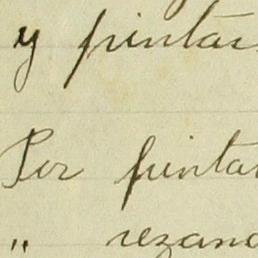 y pintar
Per pintar
" rezano